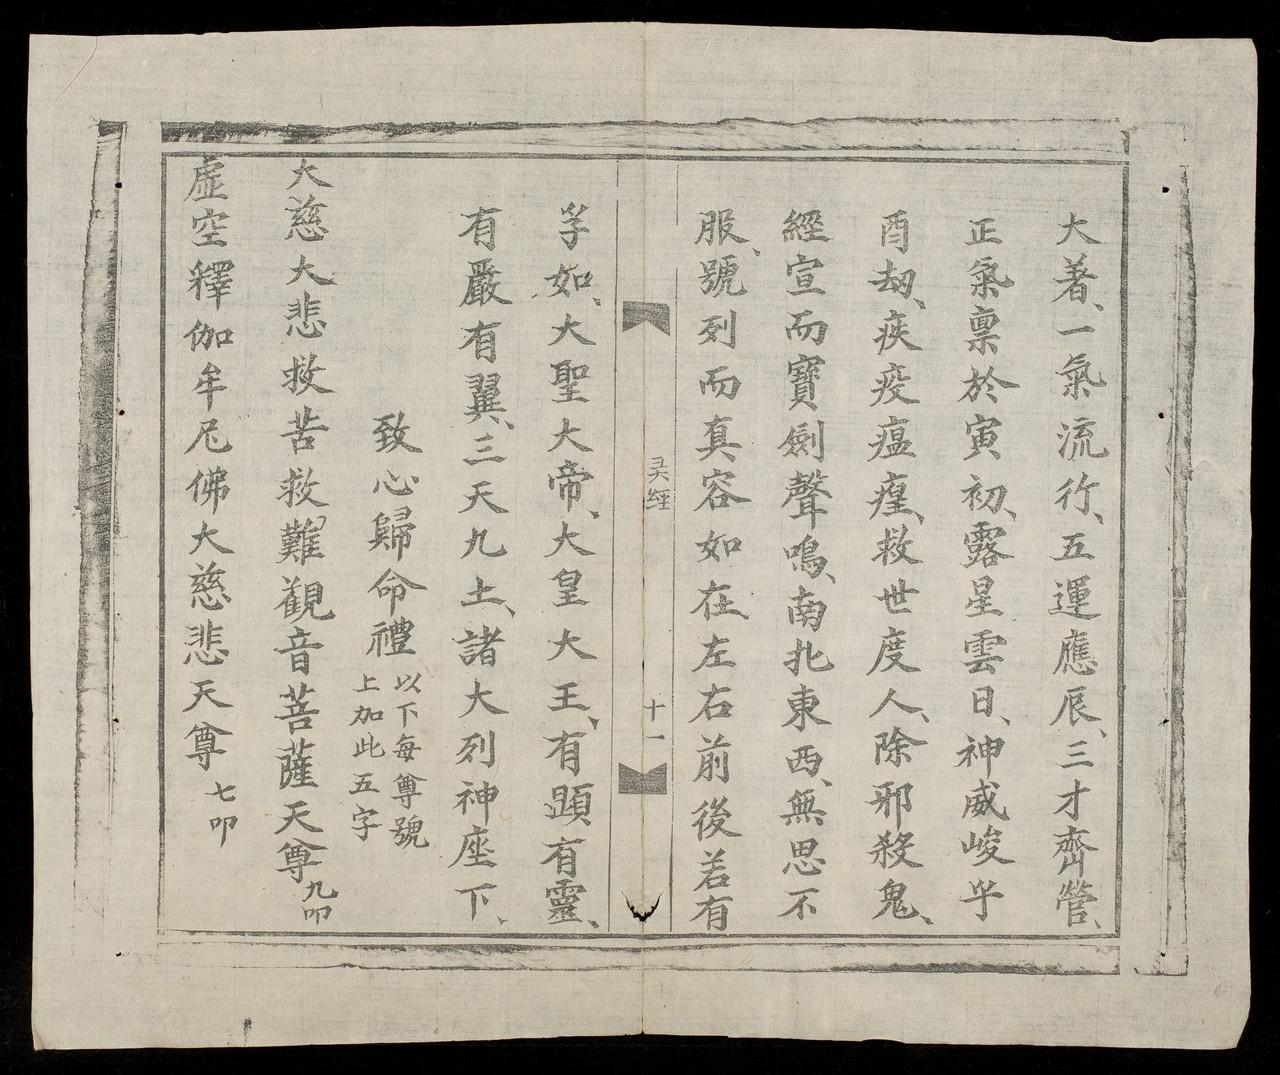 大著、一氣流行、五運應辰、三才齊營、
正氣禀於寅初、露星雲日、神威峻乎
酉劫、疾疫瘟瘴、救世度人、除邪殺鬼、
經宣而寶劍聲鳴、南北東西、無思不
服、號列而真容如在左右前後若有
孚如、大聖大帝、大皇大王、有顕有靈、
有嚴有翼、三天九土、諸大列神座下、
致心歸命禮 以下每尊號
上加此五字
大慈大悲救苦救難觀音菩薩天尊 九叩
虛空釋伽牟尼佛大慈悲天尊 七叩
十一